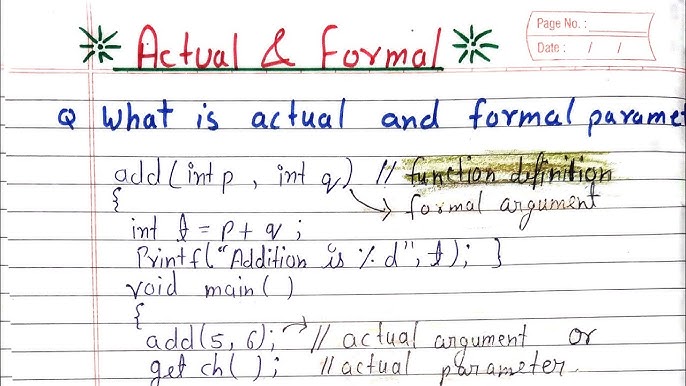 Page No. :
Date : / /
Actual & Formal
Q What is actual and formal paramet
add(int p, int q) // function definition
{ → formal argument
int t = p + q ;
Printf("Addition is %d", t); }
void main( )
{
add(5, 6); → // actual argument or
getch( ); // actual parameter.